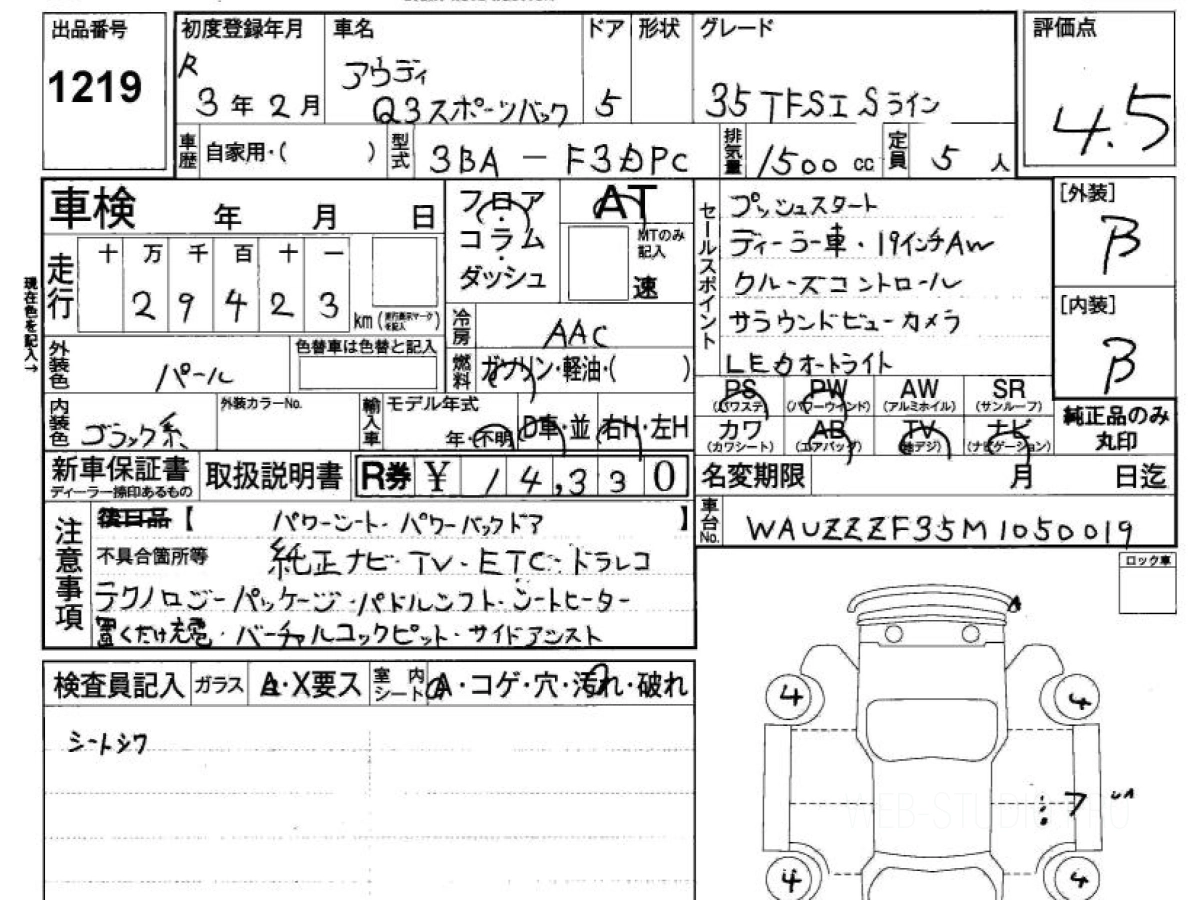 出品番号
1219
初度登録年月
R
3年2月
車名
アウディ
Q3スポーツバック
ドア
5
形状
グレード
35 TFSI Sライン
評価点
4.5
車歴
自家用・( )
型式
3BA - F3DPC
排気量
1500 cc
定員
5 人
車検 年 月 日
フロア
コラム
ダッシュ
AT
MTのみ
記入
速
セールスポイント
プッシュスタート
ディーラー車・19インチAW
クルーズコントロール
サラウンドビューカメラ
LEDオートライト
[外装]
B
[内装]
B
現在色を記入→
走行
十 万 千 百 十 一
2 9 4 2 3
km
冷房
AAC
燃料
ガソリン・軽油・( )
外装色
パール
色替車は色替と記入
内装色
ブラック系
外装カラーNo.
輸入車
モデル年式
年・不明
D車・並
右H・左H
PS
(パワステ)
PW
(パワーウインド)
AW
(アルミホイル)
SR
(サンルーフ)
カワ
(カワシート)
AB
(エアバッグ)
TV
(地デジ)
ナビ
(ナビゲーション)
純正品のみ
丸印
新車保証書
ディーラー捺印あるもの
取扱説明書
R券 ¥ 14,330
名変期限 月 日迄
車台No.
WAUZZZF35M1050019
注意事項
後日品【 パワーシート・パワーバックドア 】
不具合箇所等 純正ナビ・TV・ETC・ドラレコ
テクノロジーパッケージ・パドルシフト・シートヒーター
置くだけ充電・バーチャルコックピット・サイドアシスト
ロック車
検査員記入
ガラス
A・X要ス
室内
シート
A・コゲ・穴・汚れ・破れ
シートシワ
A
4
4
7
4
4
WEB-STUDIO PRO